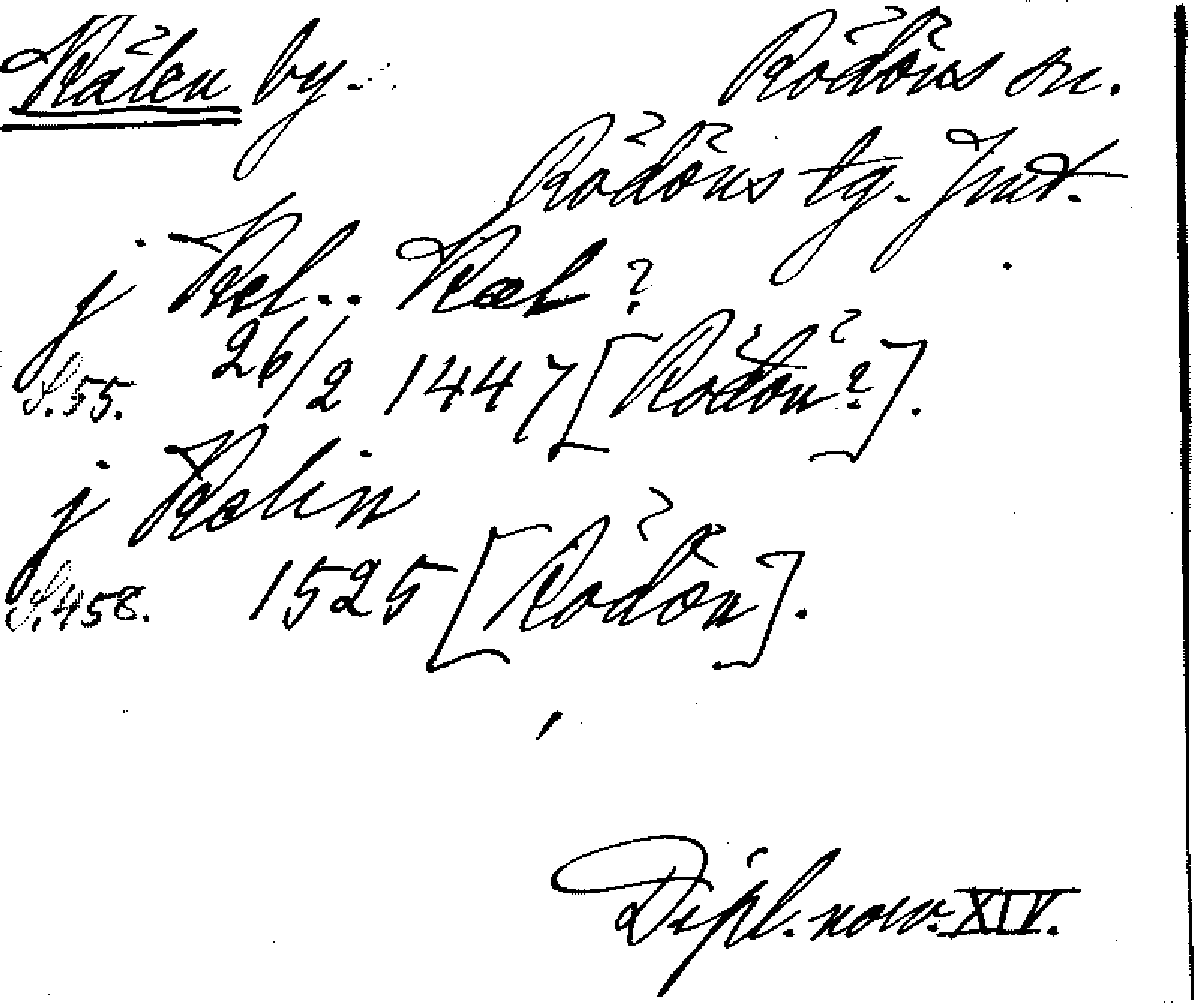 Kälen by. Rödöns sn.
Rödöns tg. Jmt.
j Kel.. Kæl ?
S.55. 26/2 1447 [Rödön?].
j Kælin
S.458. 1525 [Rödön].
Dipl. norv. XIV.